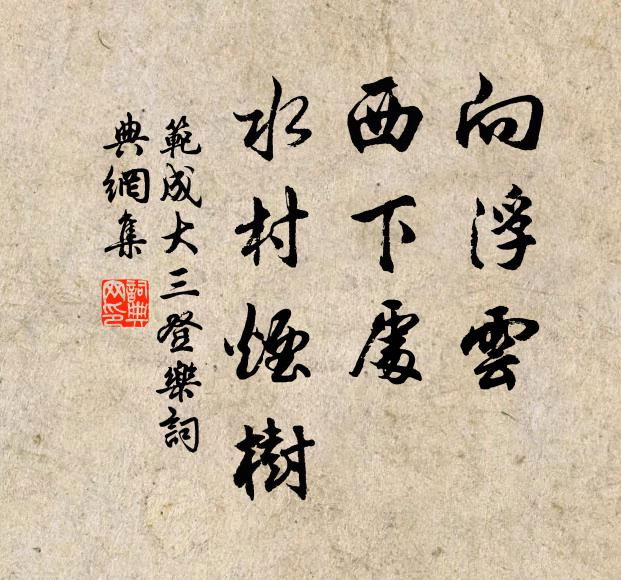 向浮雲
西下處
水村煙樹
範成大三登樂詞
典網集
詞典
网印